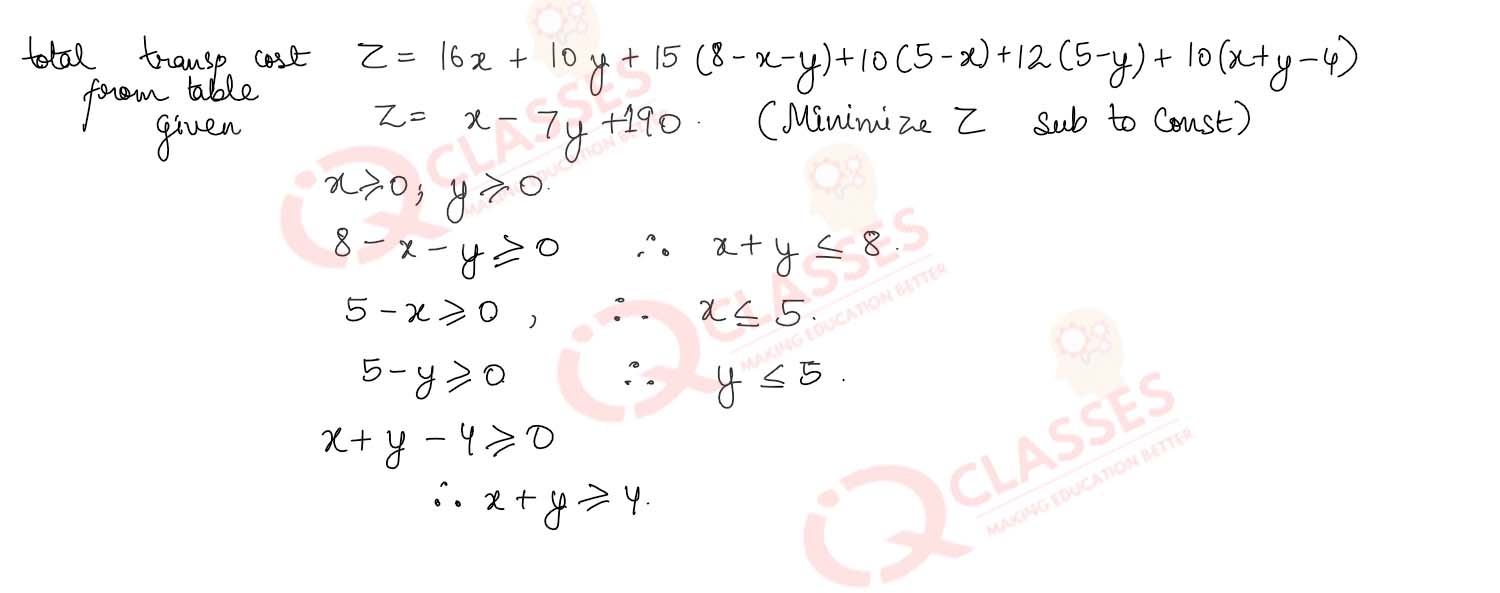 total transp cost Z = 16x + 10y + 15 (8-x-y) + 10(5-x) + 12(5-y) + 10(x+y-4)
from table
given Z = x - 7y + 190. (Minimize Z sub to const)
x ⩾ 0; y ⩾ 0.
8 - x - y ⩾ 0 ∴ x + y ≤ 8.
5 - x ⩾ 0, ∴ x ≤ 5.
5 - y ⩾ 0 ∴ y ≤ 5.
x + y - 4 ⩾ 0
∴ x + y ⩾ 4.
CLASSES
MAKING EDUCATION BETTER
CLASSES
MAKING EDUCATION BETTER
CLASSES
MAKING EDUCATION BETTER